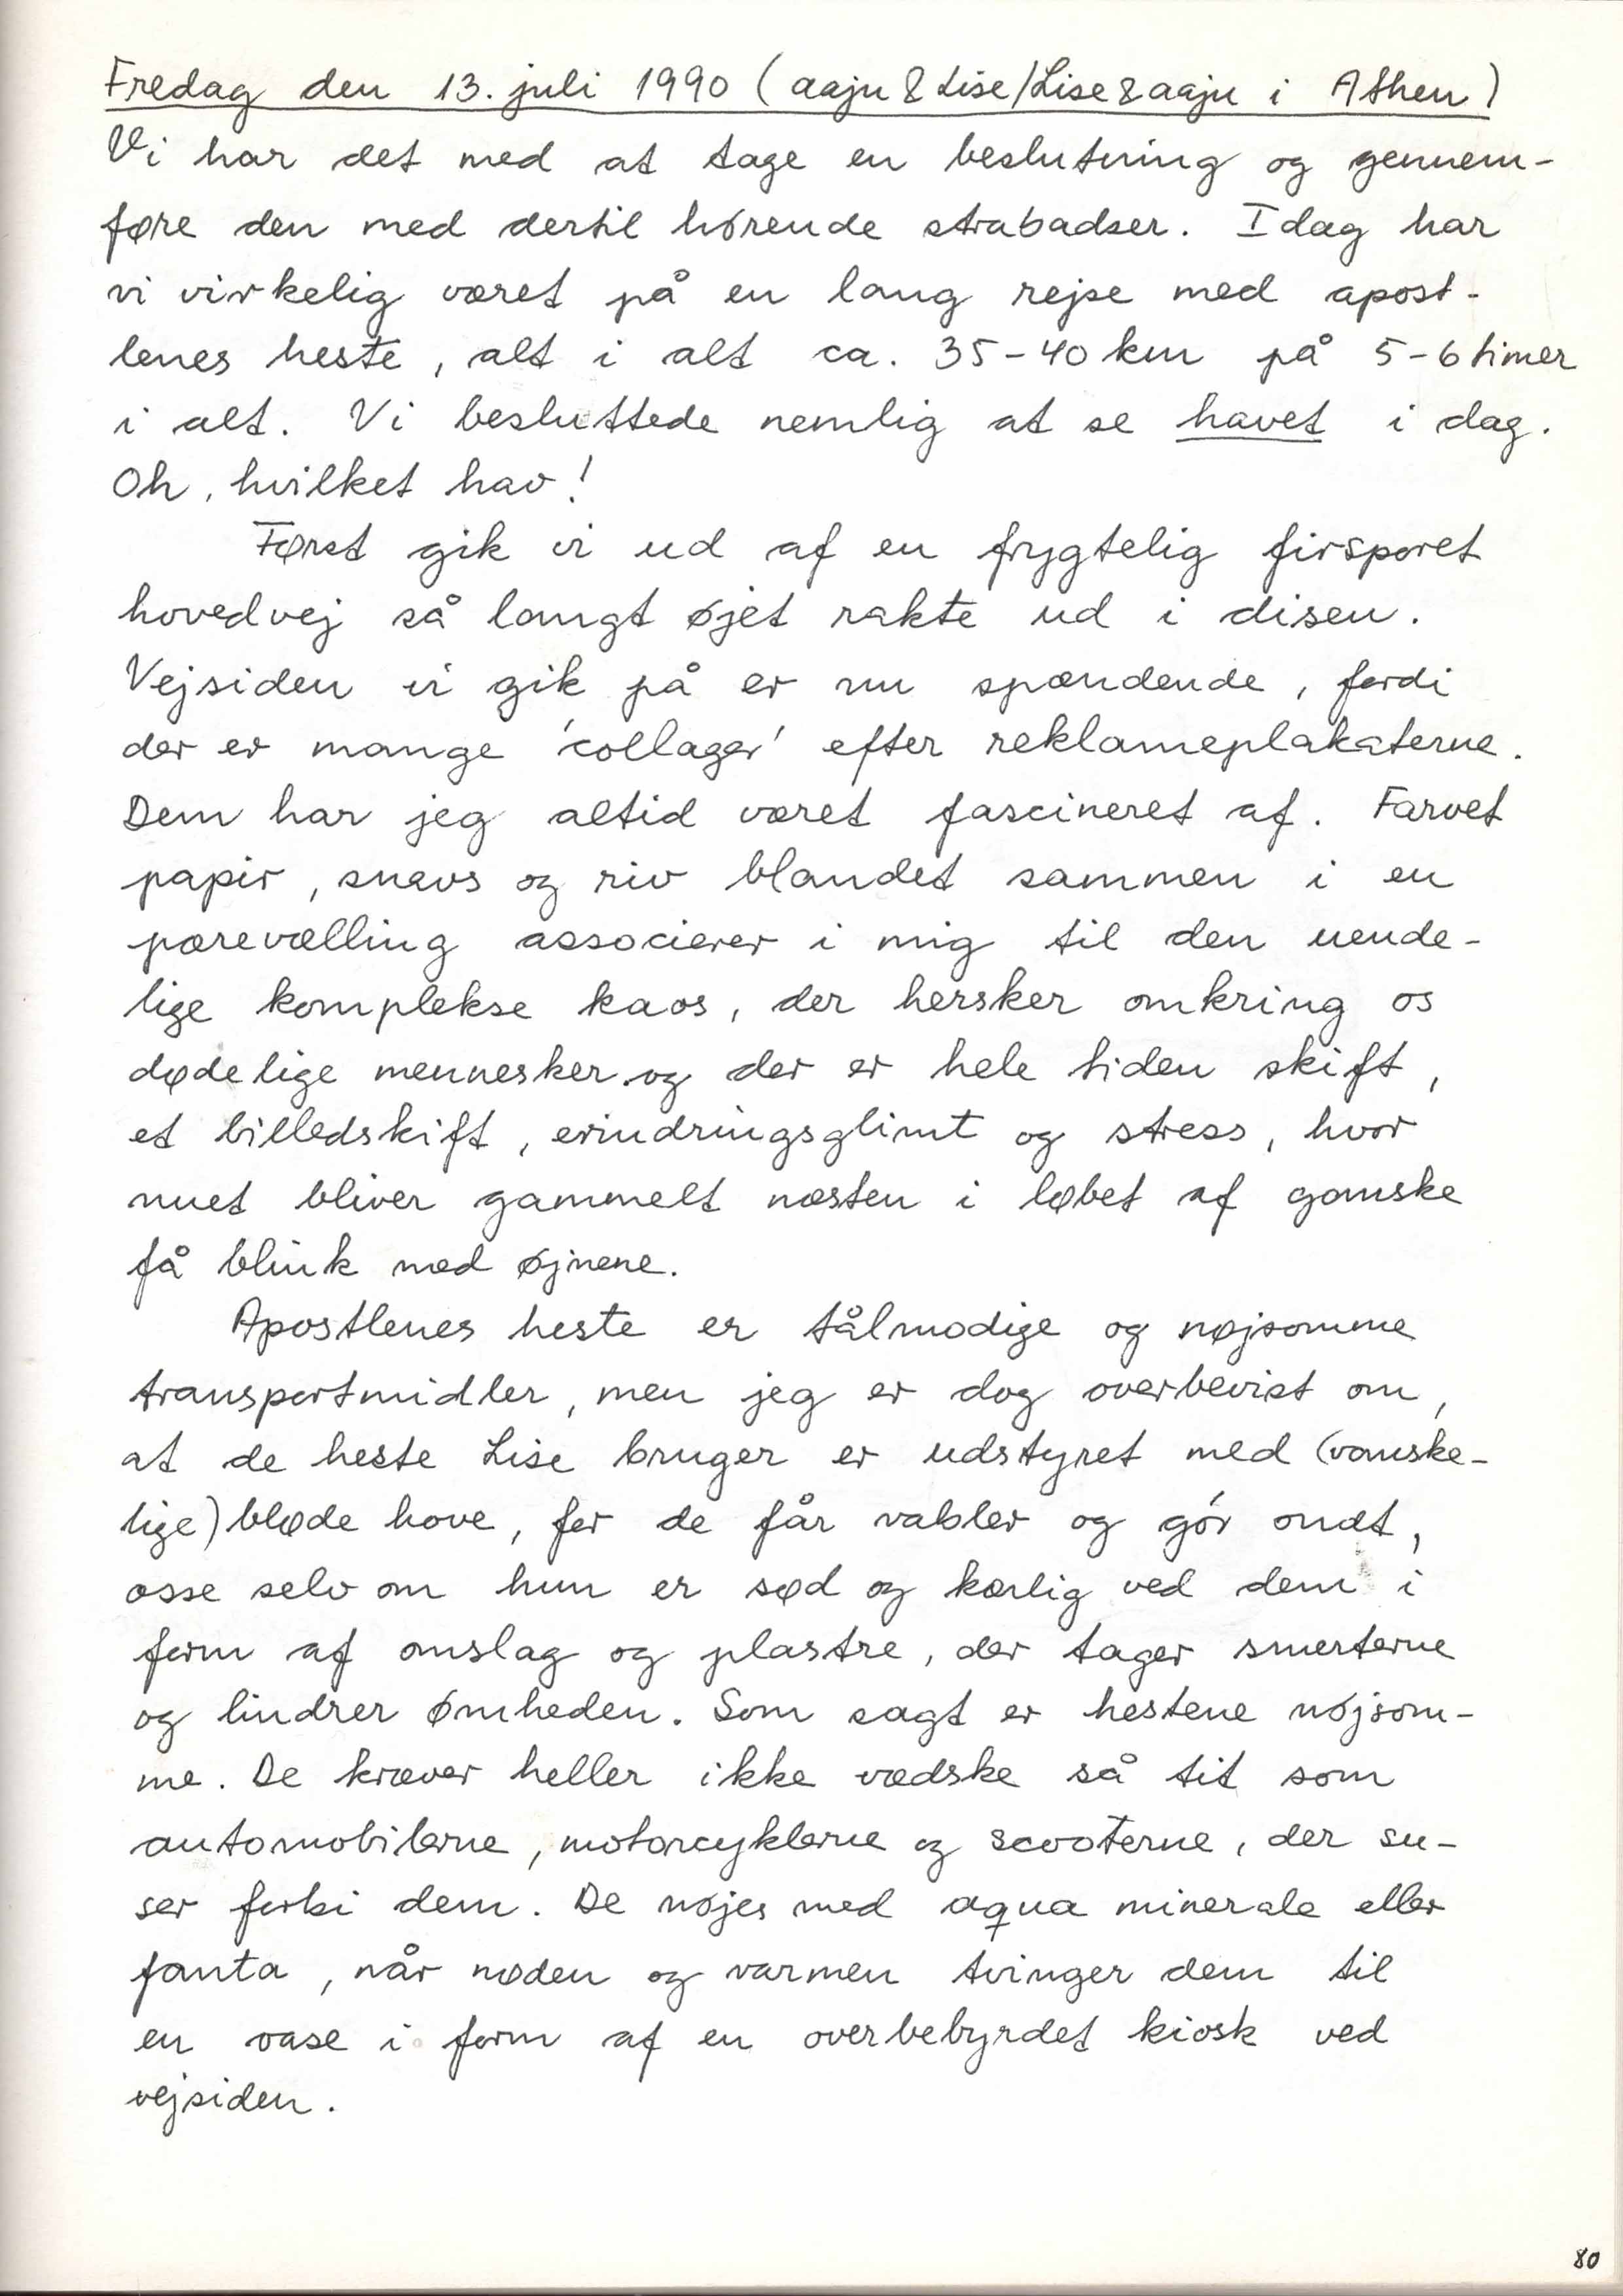 Fredag den 13. juli 1990 (aaju & Lise/Lise & aaju i Athen)
Vi har det med at tage en beslutning og gennem-
føre den med dertil hørende strabadser. Idag har
vi virkelig været på en lang rejse med apost-
lenes heste, alt i alt ca. 35-40 km på 5-6 timer
i alt. Vi besluttede nemlig at se havet i dag.
Oh, hvilket hav!
Først gik vi ud af en frygtelig firsporet
hovedvej så langt øjet rakte ud i disen.
Vejsiden vi gik på er nu spændende, fordi
der er mange 'collager' efter reklameplakaterne.
Dem har jeg altid været fascineret af. Farvet
papir, snavs og riv blandet sammen i en
pærevælling associerer i mig til den uende-
lige komplekse kaos, der hersker omkring os
dødelige mennesker og der er hele tiden skift,
et billedskift, erindringsglimt og stress, hvor
nuet bliver gammelt næsten i løbet af ganske
få blink med øjnene.
Apostlenes heste er tålmodige og nøjsomme
transportmidler, men jeg er dog overbevist om,
at de heste Lise bruger er udstyret med (vanske-
lige) bløde hove, for de får vabler og gør ondt,
osse selv om hun er sød og kærlig ved dem i
form af omslag og plastre, der tager smerterne
og lindrer ømheden. Som sagt er hestene nøjsom-
me. De kræver heller ikke vædske så tit som
automobilerne, motorcyklerne og scooterne, der su-
ser forbi dem. De nøjes med aqua minerale eller
fanta, når nøden og varmen tvinger dem til
en oase i form af en overbebyrdet kiosk ved
vejsiden.
80